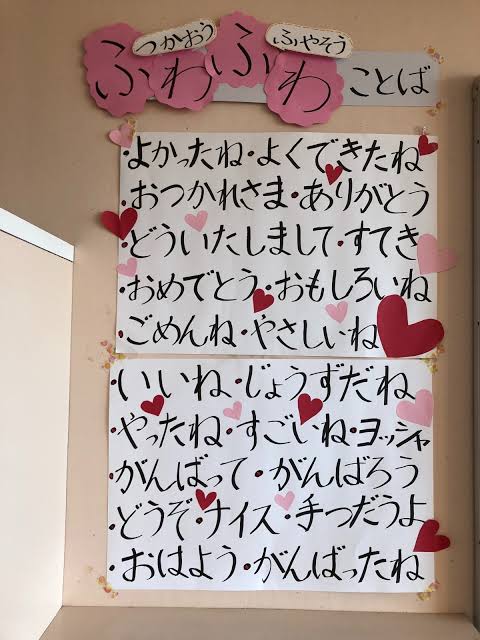 つかおう ふやそう
ふわふわことば
・よかったね・よくできたね
・おつかれさま・ありがとう
・どういたしまして・すてき
・おめでとう・おもしろいね
・ごめんね・やさしいね
・いいね・じょうずだね
・やったね・すごいね・ヨッシャ
・がんばって・がんばろう
・どうぞ・ナイス・手つだうよ
・おはよう・がんばったね